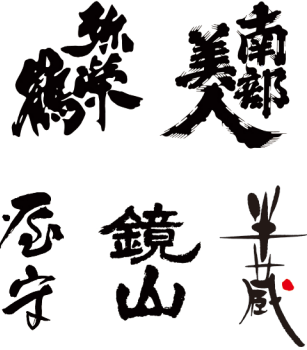 弥栄鶴
南部
美人
屋守
鏡山
半蔵